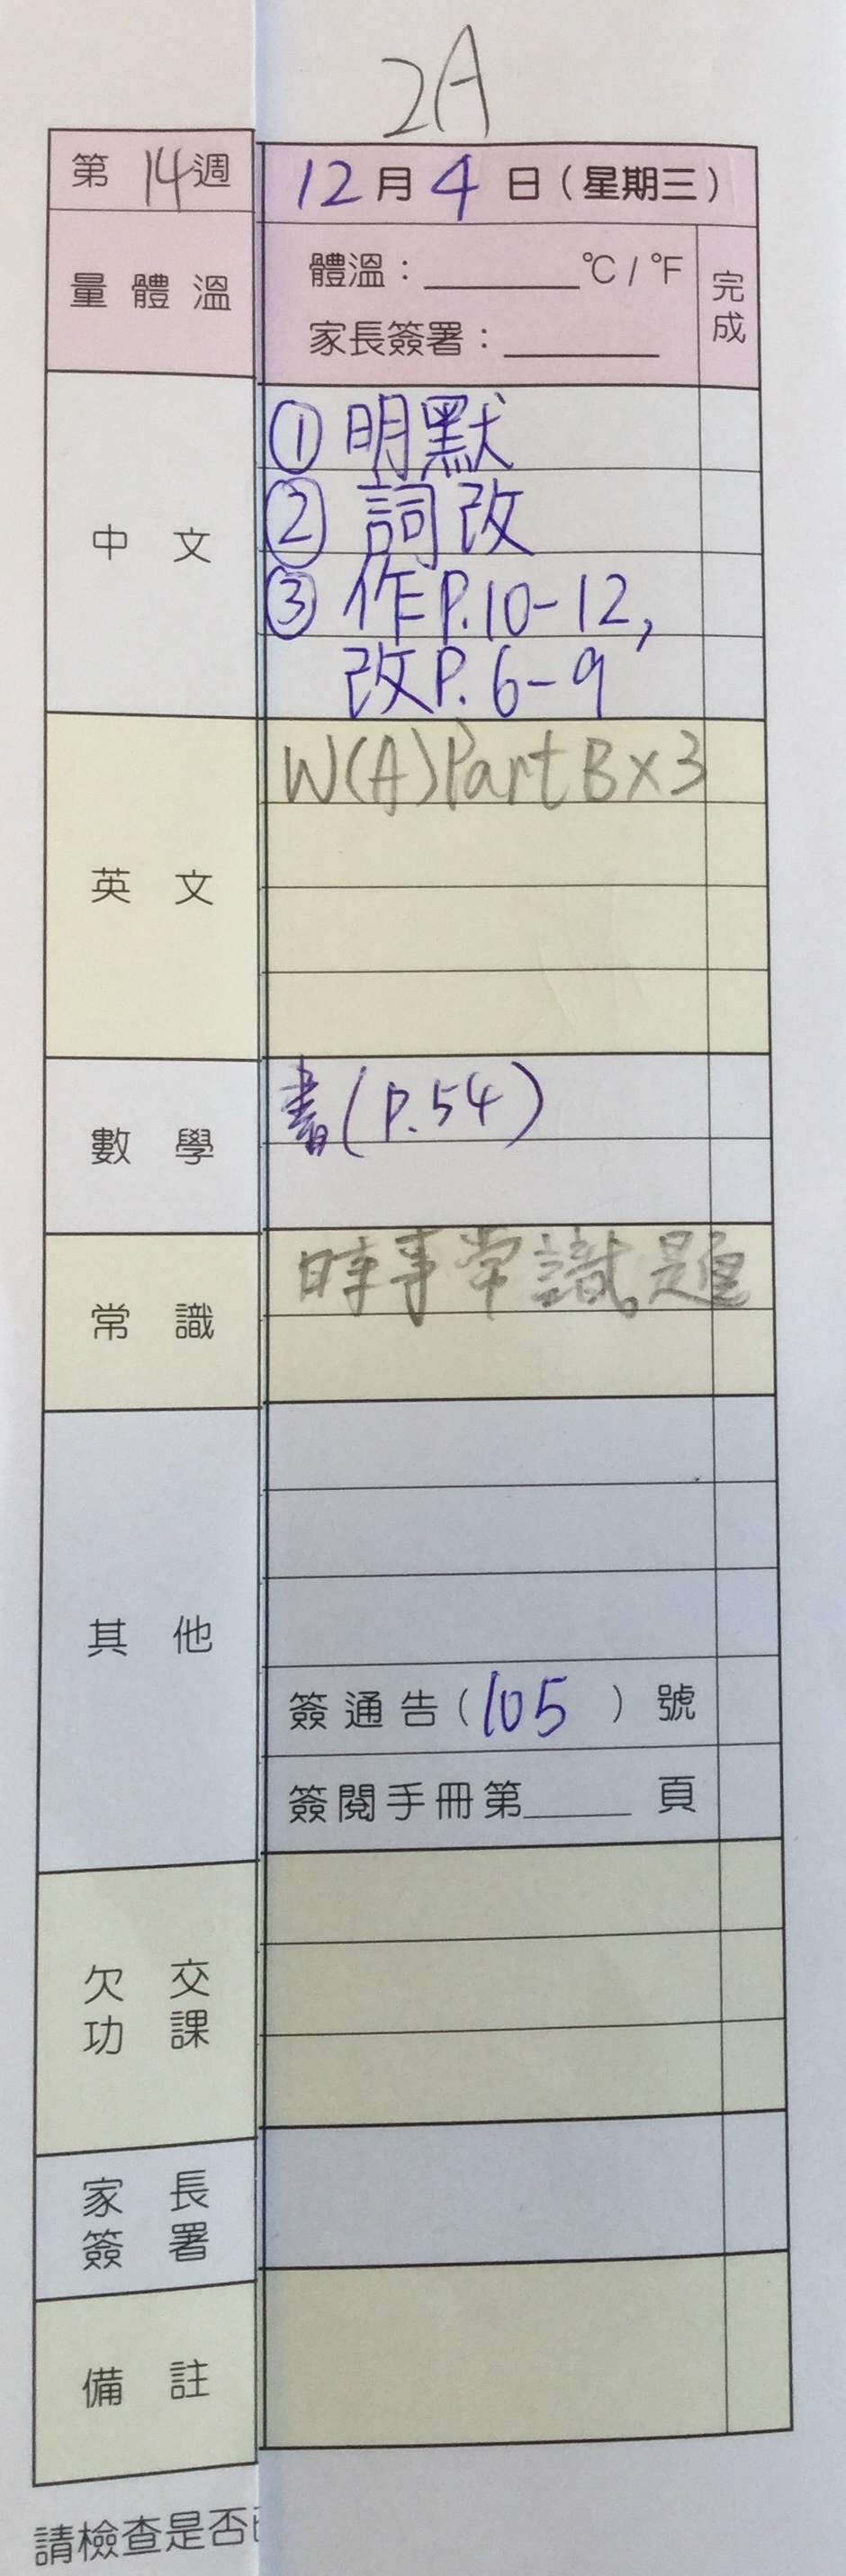 2A
第 14 週
12 月 4 日（星期三）
量體溫
體溫：______°C / °F
家長簽署：______
完成
中文
① 明默
② 詞改
③ 作P.10-12,
改P.6-9
英文
W(A)Part B×3
數學
書(P.54)
常識
時事常識題
其他
簽通告(105)號
簽閱手冊第______頁
欠交
功課
家長
簽署
備註
請檢查是否